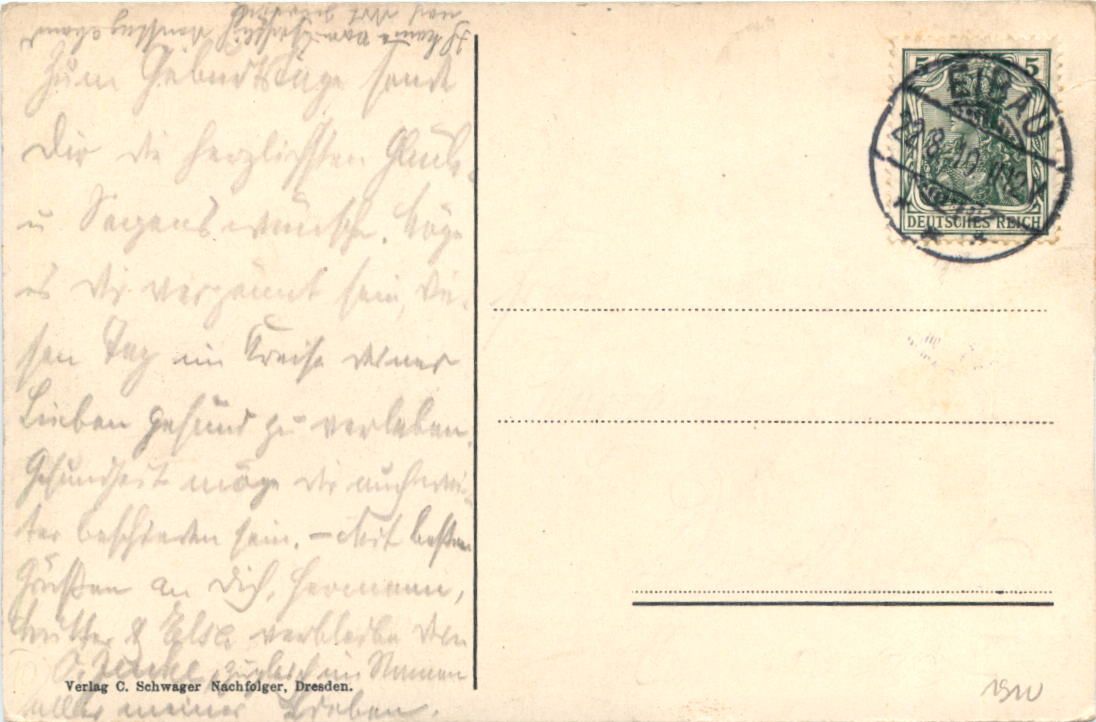 Zum Geburtstage sende
Dir die herzlichsten Glück-
u Segenswünsche. Möge
es Dir vergönnt sein, die-
sen Tag im Kreise deiner
Lieben gesund zu verleben.
Gesundheit möge dir auch wei-
ter beschieden sein. – Mit besten
Grüßen an Dich, Hermann,
Mutter & Else verbleibe Dein
zugleich im Namen
aller meiner Lieben.
Verlag C. Schwager Nachfolger, Dresden.
5 5
EIBAU
DEUTSCHES REICH
1910